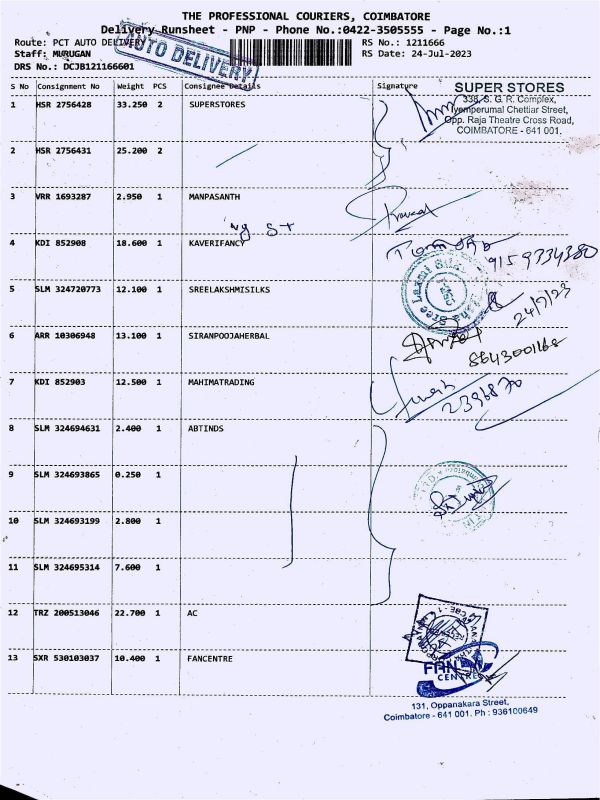 THE PROFESSIONAL COURIERS, COIMBATORE
Delivery Runsheet - PNP - Phone No.:0422-3505555 - Page No.:1
Route: PCT AUTO DELIVERY
RS No.: 1211666
AUTO DELIVERY
Staff: MURUGAN
RS Date: 24-Jul-2023
DRS No.: DCJB121166601
S No Consignment No Weight PCS Consignee Details Signature
SUPER STORES
338, S. G. R. Complex,
Iyemperumal Chettiar Street,
Opp. Raja Theatre Cross Road,
COIMBATORE - 641 001.
1 HSR 2756428 33.250 2 SUPERSTORES
2 HSR 2756431 25.200 2
3 VRR 1693287 2.950 1 MANPASANTH
4 KDI 852908 18.600 1 KAVERIFANCY
9159334380
5 SLM 324720773 12.100 1 SREELAKSHMISILKS
24/7/23
6 ARR 10306948 13.100 1 SIRANPOOJAHERBAL
7 KDI 852903 12.500 1 MAHIMATRADING
2396870
8 SLM 324694631 2.400 1 ABTINDS
9 SLM 324693865 0.250 1
10 SLM 324693199 2.800 1
11 SLM 324695314 7.600 1
12 TRZ 200513046 22.700 1 AC
13 SXR 530103037 10.400 1 FANCENTRE
FAN
CENTRE
131, Oppanakara Street,
Coimbatore - 641 001. Ph : 936100649